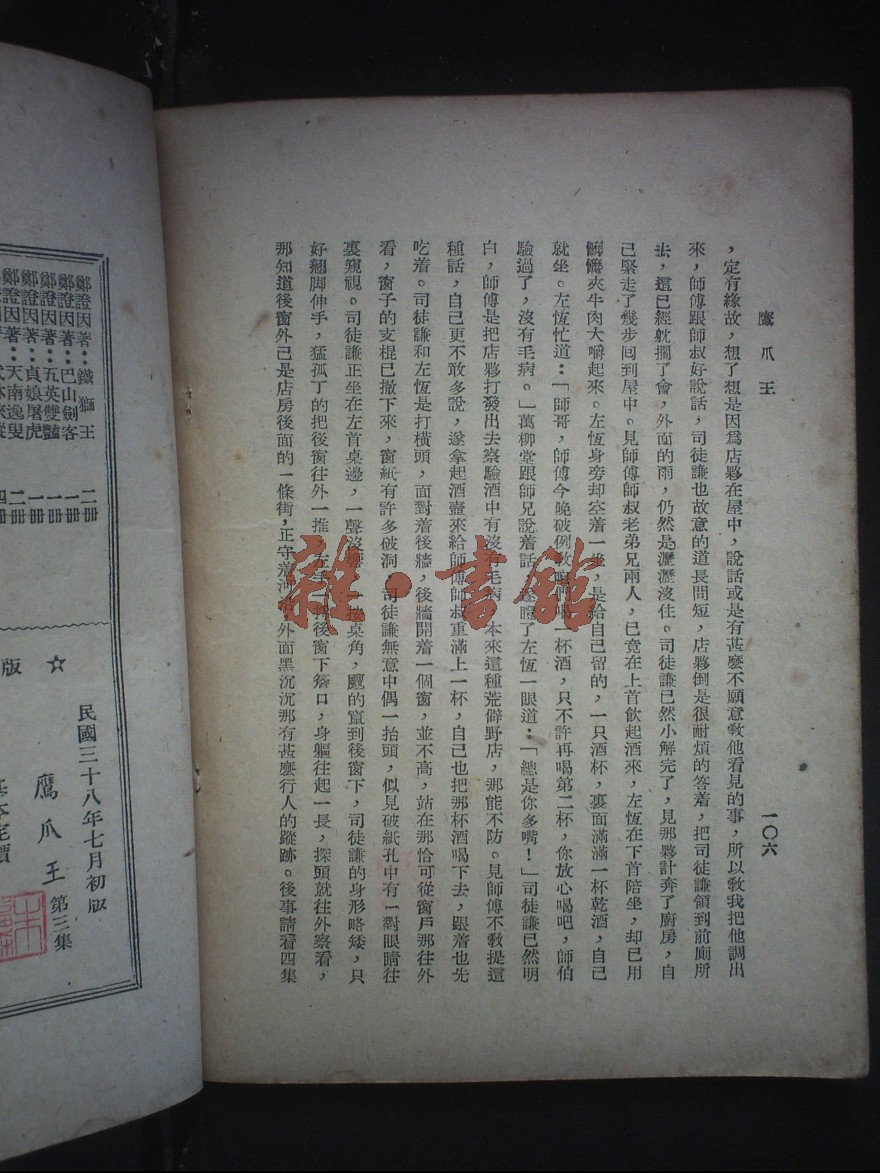 鷹爪王
一〇六
，定有緣故，想了想是因爲店夥在屋中，說話或是有甚麽不願意敎他看見的事，所以敎我把他調出
來，師傅跟師叔好說話，司徒謙也故意的道長問短，店夥倒是很耐煩的答着，把司徒謙領到前面厠所
去，這已經躭擱了會，外面的雨，仍然是瀝瀝沒住。司徒謙已然小解完了，見那夥計奔了厨房，自
己緊走了幾步回到屋中。見師傅師叔老弟兄兩人，已竟在上首飲起酒來，左恆在下首陪坐，却已用
餑餑夾牛肉大嚼起來。左恆身旁却空着一坐，是給自已留的，一只酒杯，裏面滿滿一杯乾酒，自己
就坐。左恆忙道：「師哥，師傅今晚破例敎咱們喝一杯酒，只不許再喝第二杯，你放心喝吧，師伯
驗過了，沒有毛病。」萬柳堂跟師兄說着話，遂瞪了左恆一眼道：「總是你多嘴！」司徒謙已然明
白，師傅是把店夥打發出去察驗酒中有沒有毛病，本來這種荒僻野店，那能不防。見師傅不敎提這
種話，自己更不敢多說，遂拿起酒壺來給師傅師叔重滿上一杯，自己也把那杯酒喝下去，跟着也先
吃着。司徒謙和左恆是打橫頭，面對着後牆，後牆開着一個窗，並不高，站在那恰可從窗戶那往外
看，窗子的支棍已撤下來，窗紙有許多破洞，司徒謙無意中偶一抬頭，似見破紙孔中有一對眼睛往
裏窺視。司徒謙正坐在左首桌邊，一聲沒響，一按桌角，颼的竄到後窗下，司徒謙的身形略矮，只
好翹脚伸手，猛孤丁的把後窗往外一推，左手一搭後窗下簷口，身軀往起一長，探頭就往外察看，
那知道後窗外已是店房後面的一條街，正守着河沿，外面黑沉沉那有甚麽行人的蹤跡。後事請看四集
雜·書館
鄭證因著：鐵獅王 二冊
鄭證因著：巴山劍客 一冊
鄭證因著：五英雙豔 一冊
鄭證因著：貞娘屠虎 一冊
鄭證因著：天南逸叟 二冊
四冊
民國三十八年七月初版
☆ 版
鷹爪王 第三集
基本定價